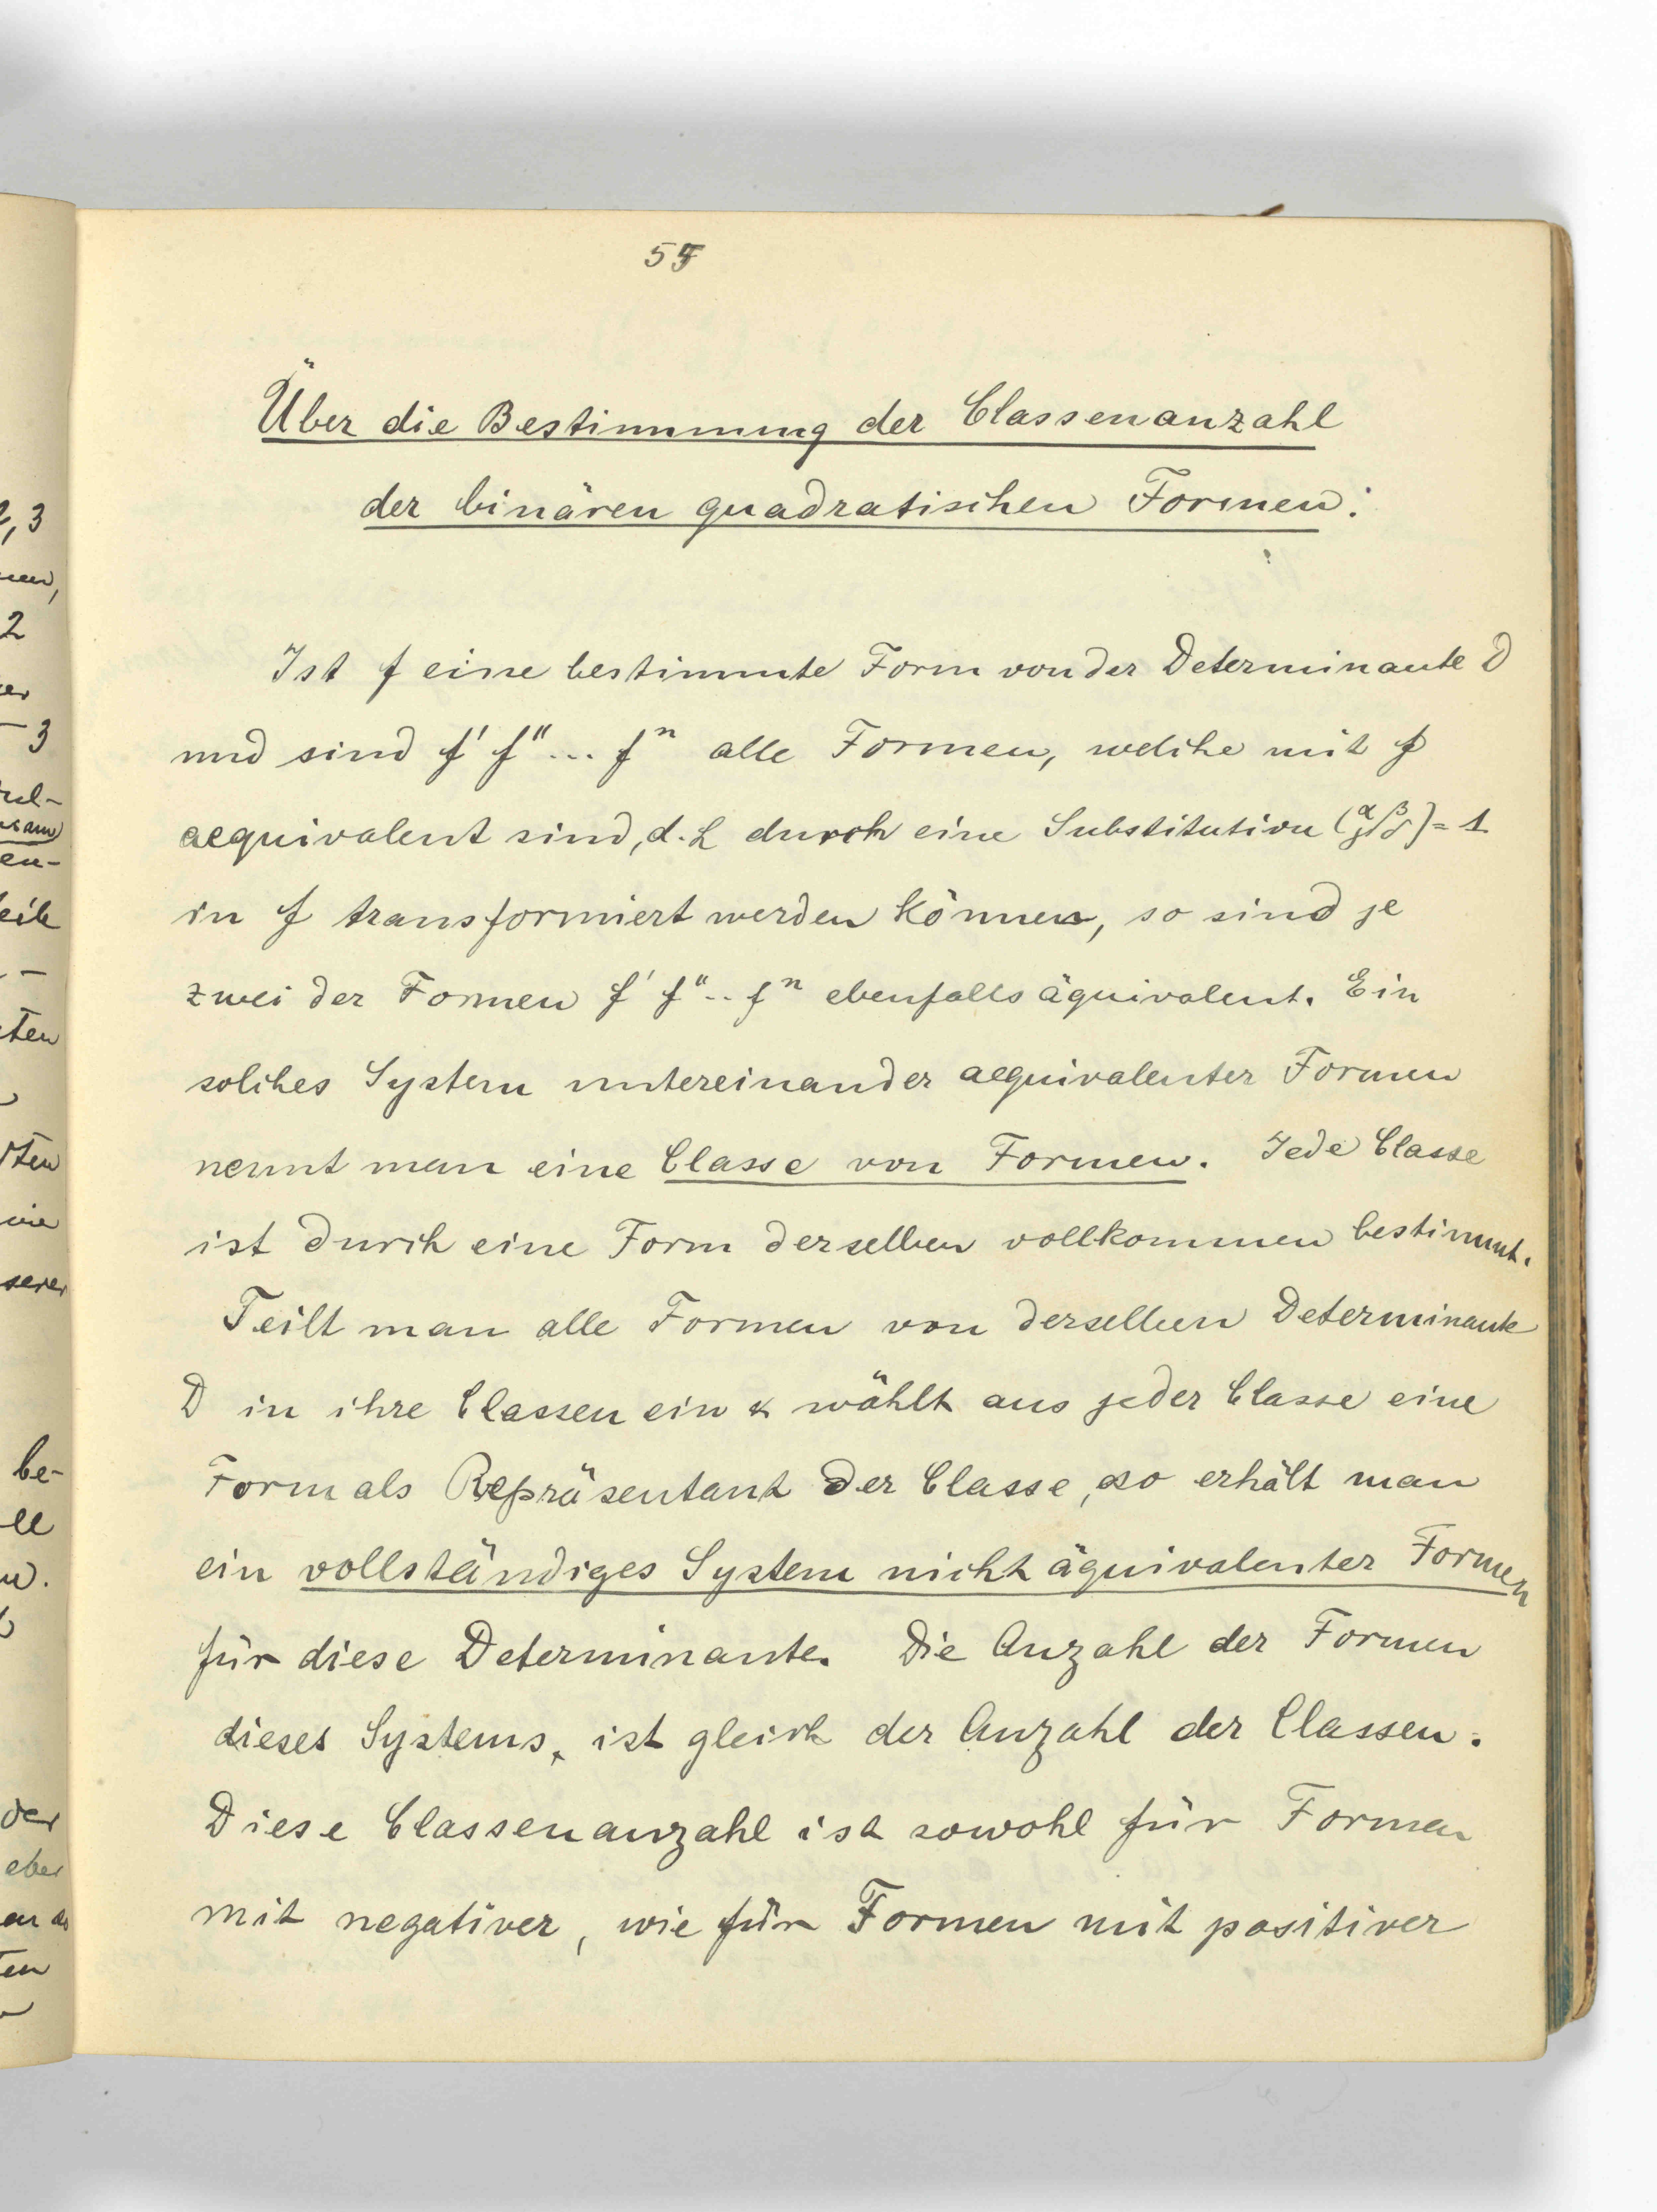 55
Über die Bestimmung der Classenanzahl
der binären quadratischen Formen:
Ist f eine bestimmte Form von der Determinante D
und sind f' f'' ... fⁿ alle Formen, welche mit f
aequivalent sind, d. h durch eine Substitution (α β γ δ) = 1
in f transformiert werden können, so sind je
zwei der Formen f' f'' .. fⁿ ebenfalls äquivalent. Ein
solches System untereinander aequivalenter Formen
nennt man eine Classe von Formen. Jede Classe
ist durch eine Form derselben vollkommen bestimmt.
Teilt man alle Formen von derselben Determinante
D in ihre Classen ein & wählt aus jeder Classe eine
Form als Repräsentant der Classe, so erhält man
ein vollständiges System nicht äquivalenter Formen
für diese Determinante. Die Anzahl der Formen
dieses Systems, ist gleich der Anzahl der Classen.
Diese Classenanzahl ist sowohl für Formen
mit negativer, wie für Formen mit positiver
2, 3
2
3
eile
be-
der